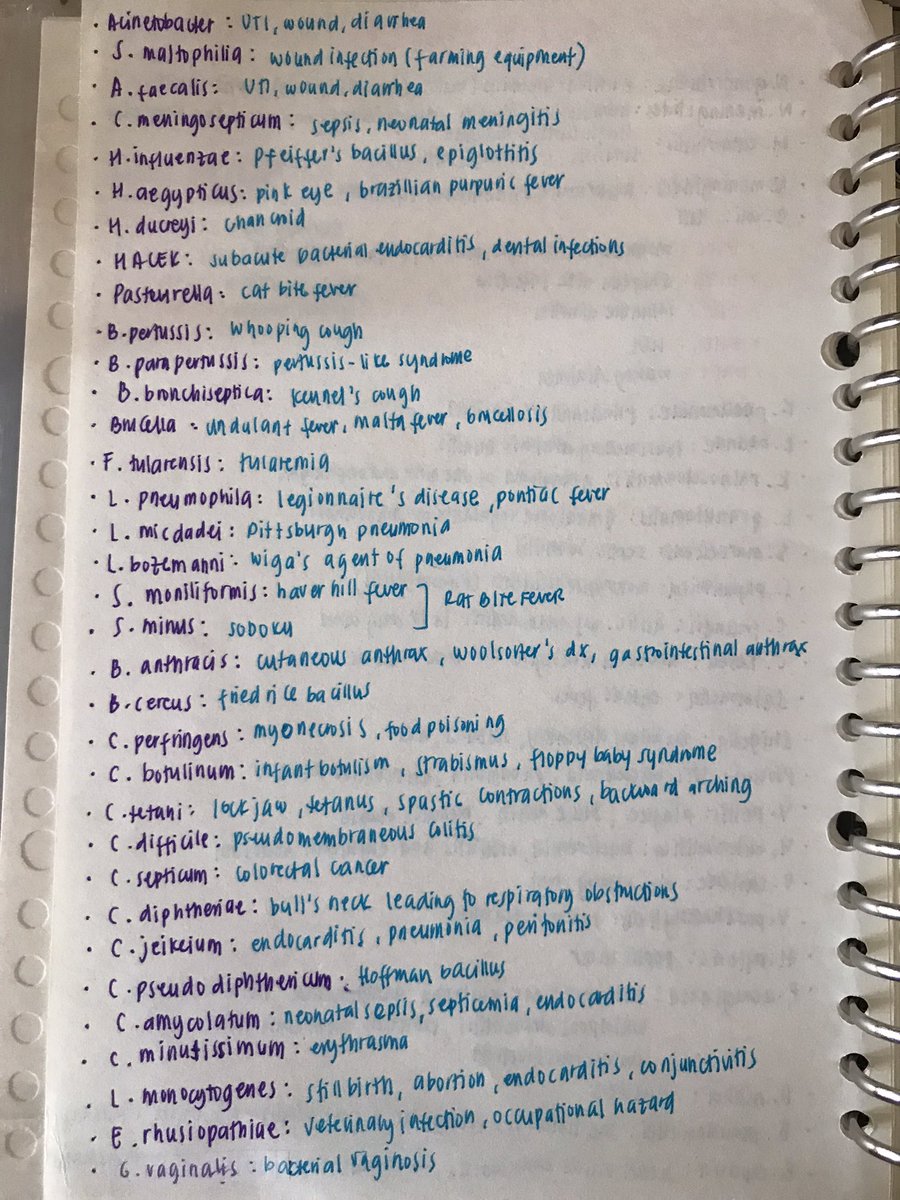 • Acinetobacter : UTI, wound, diarrhea
• S. maltophilia : wound infection (farming equipment)
• A. faecalis : UTI, wound, diarrhea
• C. meningosepticum : sepsis, neonatal meningitis
• H. influenzae : Pfeiffer's bacillus, epiglottitis
• H. aegypticus : pink eye, brazillian purpuric fever
• H. ducreyi : chancroid
• HACEK : subacute bacterial endocarditis, dental infections
• Pasteurella : cat bite fever
• B. pertussis : whooping cough
• B. parapertussis : pertussis-like syndrome
• B. bronchiseptica : kennel's cough
• Brucella : undulant fever, malta fever, brucellosis
• F. tularensis : tularemia
• L. pneumophila : legionnaire's disease, pontiac fever
• L. micdadei : Pittsburgh pneumonia
• L. bozemanni : wiga's agent of pneumonia
• S. moniliformis : haverhill fever ] RAT BITE FEVER
• S. minus : SODOKU
• B. anthracis : cutaneous anthrax, woolsorter's dx, gastrointestinal anthrax
• B. cereus : fried rice bacillus
• C. perfringens : myonecrosis, food poisoning
• C. botulinum : infant botulism, strabismus, floppy baby syndrome
• C. tetani : lock jaw, tetanus, spastic contractions, backward arching
• C. difficile : pseudomembraneous colitis
• C. septicum : colorectal cancer
• C. diphtheriae : bull's neck leading to respiratory obstructions
• C. jeikeium : endocarditis, pneumonia, peritonitis
• C. pseudodiphthericum : Hoffman bacillus
• C. amycolatum : neonatal sepsis, septicemia, endocarditis
• C. minutissimum : erythrasma
• L. monocytogenes : stillbirth, abortion, endocarditis, conjunctivitis
• E. rhusiopathiae : veterinary infection, occupational hazard
• G. vaginalis : bacterial vaginosis